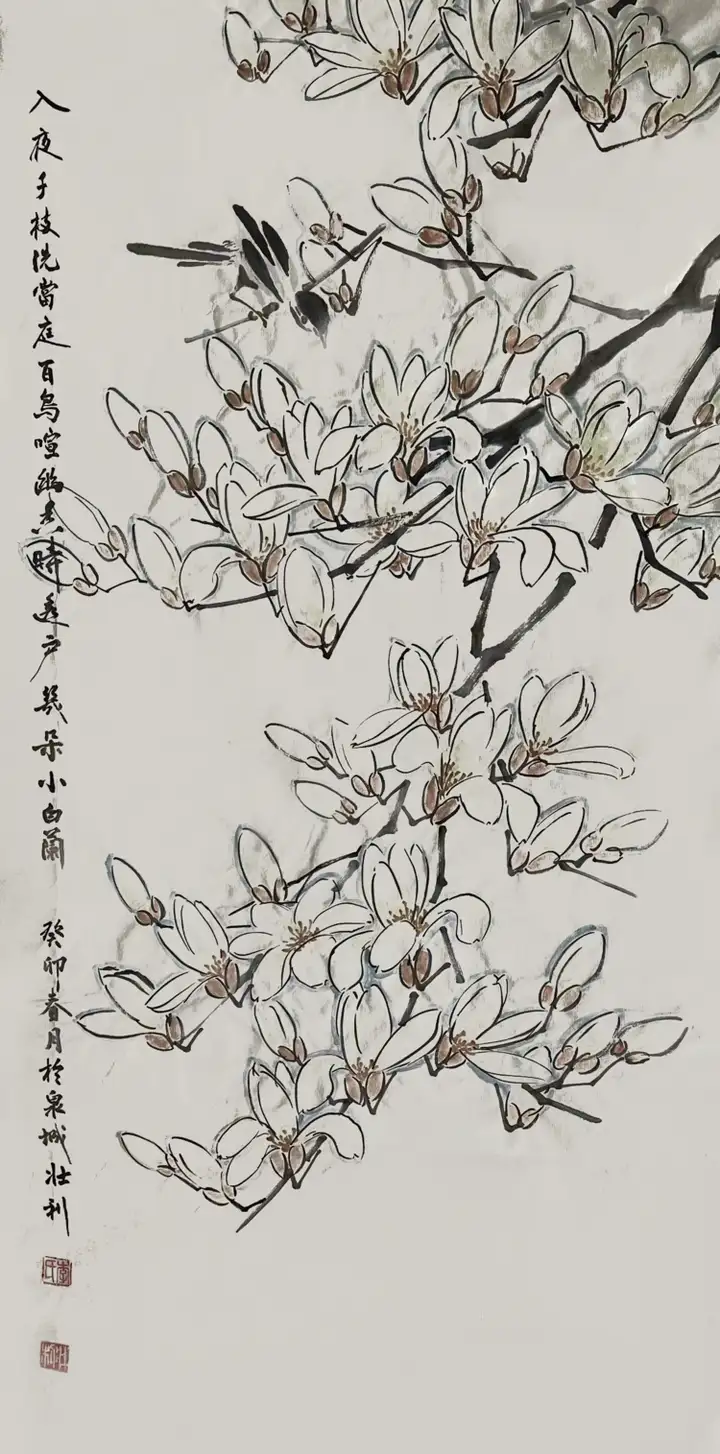 入夜千枝洗當庭百鳥喧幽香時透戶幾朵小白蘭 癸卯春月於泉城壯利
李氏